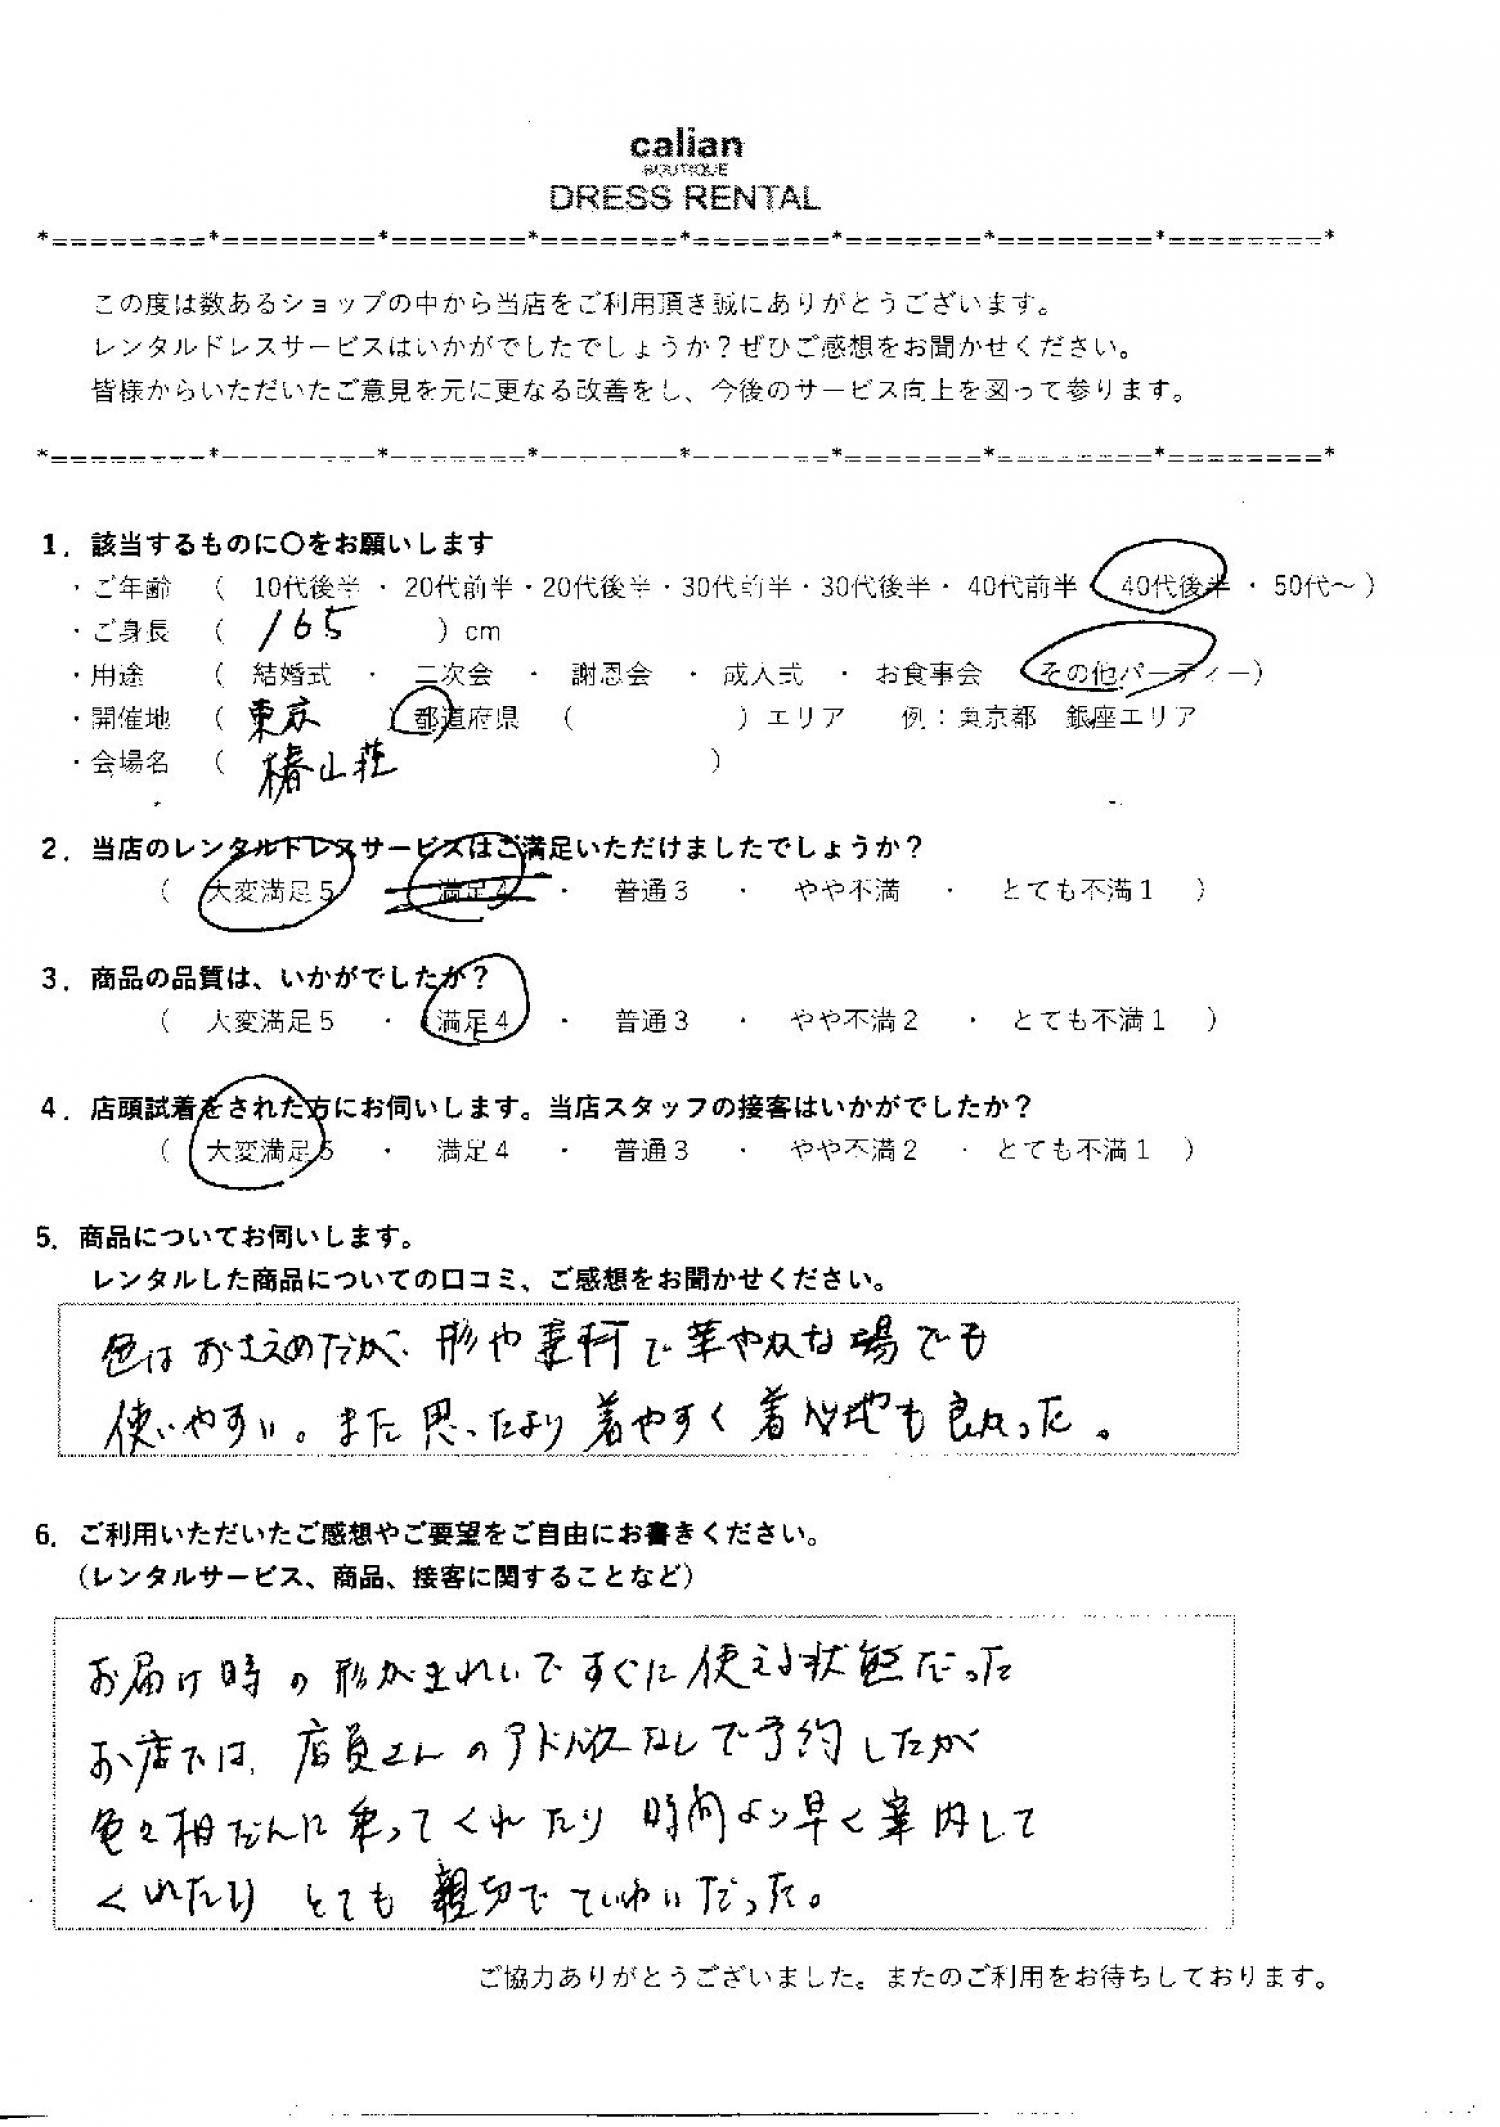 calian
BOUTIQUE
DRESS RENTAL
*========*========*=======*=======*=======*=======*========*========*
この度は数あるショップの中から当店をご利用頂き誠にありがとうございます。
レンタルドレスサービスはいかがでしたでしょうか？ぜひご感想をお聞かせください。
皆様からいただいたご意見を元に更なる改善をし、今後のサービス向上を図って参ります。
*========*--------*-------*-------*-------*=======*========*========*
1．該当するものに〇をお願いします
・ご年齢 （ 10代後半 ・ 20代前半・20代後半・30代前半・30代後半・ 40代前半 ・ 40代後半 ・ 50代～ ）
・ご身長 （ 165 ）cm
・用途 （ 結婚式 ・ 二次会 ・ 謝恩会 ・ 成人式 ・ お食事会 その他パーティー）
・開催地 （ 東京 ）都道府県 （ ）エリア 例：東京都 銀座エリア
・会場名 （ 椿山荘 ）
2．当店のレンタルドレスサービスはご満足いただけましたでしょうか？
（ 大変満足５ 満足４ ・ 普通３ ・ やや不満 ・ とても不満１ ）
3．商品の品質は、いかがでしたか？
（ 大変満足５ ・ 満足４ ・ 普通３ ・ やや不満２ ・ とても不満１ ）
4．店頭試着をされた方にお伺いします。当店スタッフの接客はいかがでしたか？
（ 大変満足５ ・ 満足４ ・ 普通３ ・ やや不満２ ・ とても不満１ ）
5．商品についてお伺いします。
レンタルした商品についての口コミ、ご感想をお聞かせください。
色はおさえめだが、形や素材で華やかな場でも
使いやすい。また思ったより着やすく着心地も良かった。
6．ご利用いただいたご感想やご要望をご自由にお書きください。
（レンタルサービス、商品、接客に関することなど）
お届け時の形がきれいですぐに使える状態だった
お店では、店員さんのアドバイスなしで予約したが
色々相だんに乗ってくれたり 時間より早く案内して
くれたり とても親切でていねいだった。
ご協力ありがとうございました。またのご利用をお待ちしております。